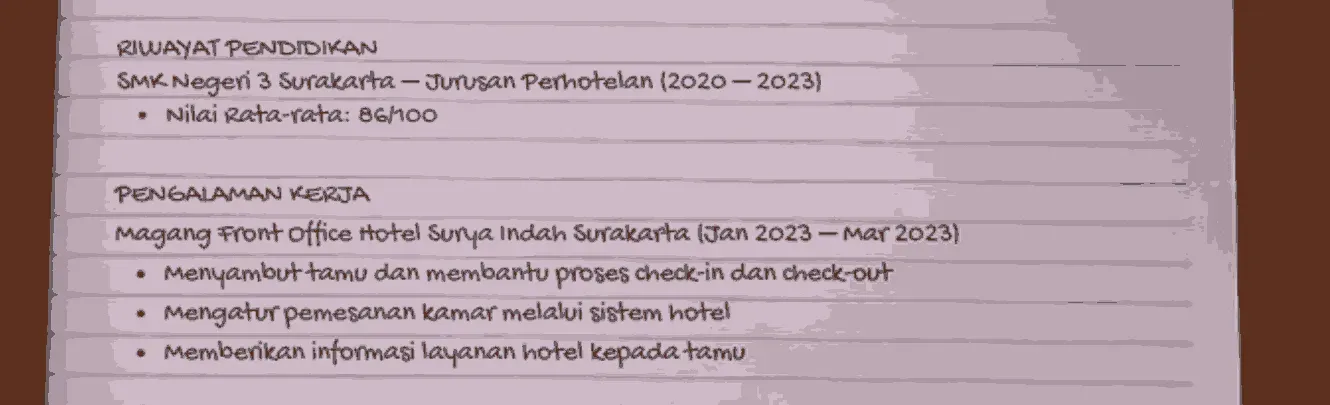 RIWAYAT PENDIDIKAN
SMK Negeri 3 Surakarta — Jurusan Perhotelan (2020 — 2023)
• Nilai Rata-rata: 86/100
PENGALAMAN KERJA
Magang Front Office Hotel Surya Indah Surakarta (Jan 2023 — Mar 2023)
• Menyambut tamu dan membantu proses check-in dan check-out
• Mengatur pemesanan kamar melalui sistem hotel
• Memberikan informasi layanan hotel kepada tamu